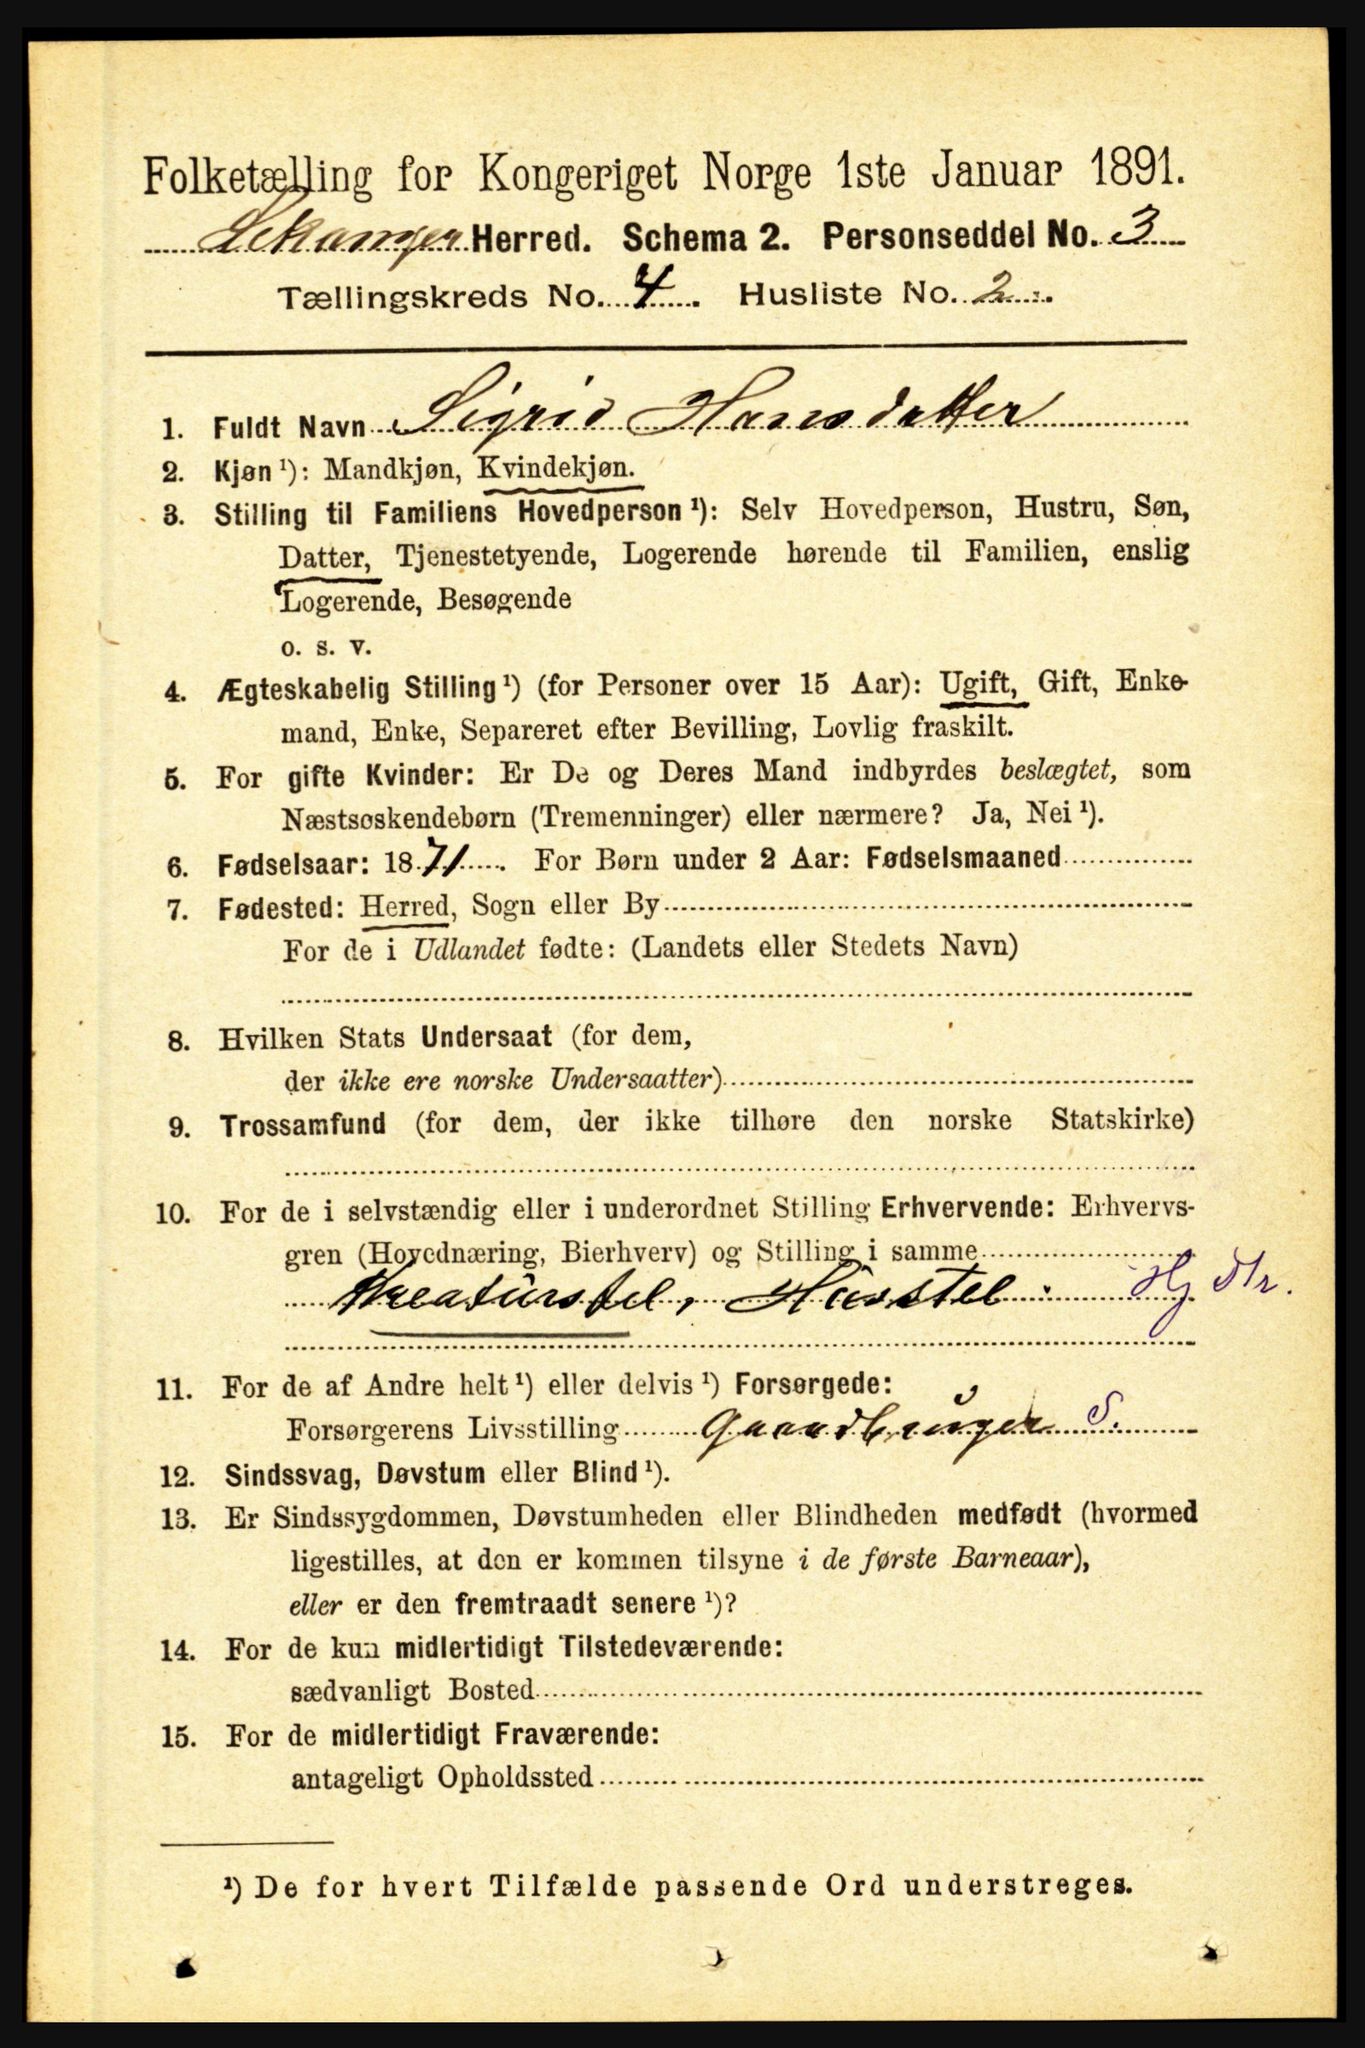 Folketælling for Kongeriget Norge 1ste Januar 1891.
Lekanger Herred. Schema 2. Personseddel No. 3
Tællingskreds No. 4. Husliste No. 2.
1. Fuldt Navn Sigrid Hansdatter
2. Kjøn ¹): Mandkjøn, Kvindekjøn.
3. Stilling til Familiens Hovedperson ¹): Selv Hovedperson, Hustru, Søn,
Datter, Tjenestetyende, Logerende hørende til Familien, enslig
Logerende, Besøgende
o. s. v.
4. Ægteskabelig Stilling ¹) (for Personer over 15 Aar): Ugift, Gift, Enke-
mand, Enke, Separeret efter Bevilling, Lovlig fraskilt.
5. For gifte Kvinder: Er De og Deres Mand indbyrdes beslægtet, som
Næstsøskendebørn (Tremenninger) eller nærmere? Ja, Nei ¹).
6. Fødselsaar: 1871. For Børn under 2 Aar: Fødselsmaaned
7. Fødested: Herred, Sogn eller By
For de i Udlandet fødte: (Landets eller Stedets Navn)
8. Hvilken Stats Undersaat (for dem,
der ikke ere norske Undersaatter)
9. Trossamfund (for dem, der ikke tilhøre den norske Statskirke)
10. For de i selvstændig eller i underordnet Stilling Erhvervende: Erhvervs-
gren (Hovednæring, Bierhverv) og Stilling i samme
Kreaturstel, Husstel. Hj dtr.
11. For de af Andre helt ¹) eller delvis ¹) Forsørgede:
Forsørgerens Livsstilling Gaardbruger S.
12. Sindssvag, Døvstum eller Blind ¹).
13. Er Sindssygdommen, Døvstumheden eller Blindheden medfødt (hvormed
ligestilles, at den er kommen tilsyne i de første Barneaar),
eller er den fremtraadt senere ¹)?
14. For de kun midlertidigt Tilstedeværende:
sædvanligt Bosted
15. For de midlertidigt Fraværende:
antageligt Opholdssted
¹) De for hvert Tilfælde passende Ord understreges.